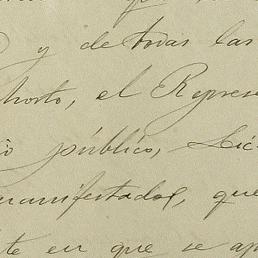 y de todas las
el Represe
público, Lic
manifestados, que
te en que se ap